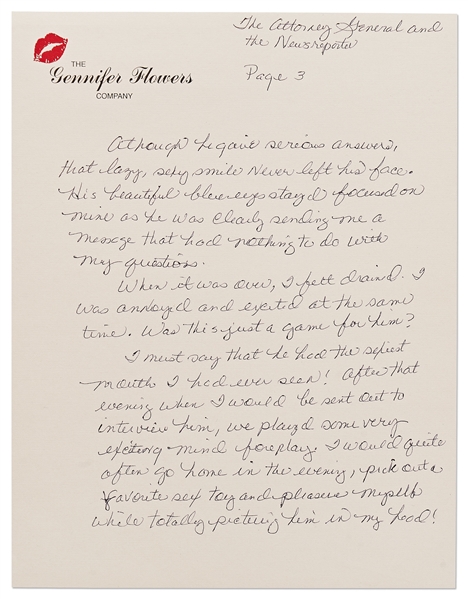 The Attorney General and
the Newsreporter
THE
Gennifer Flowers
COMPANY
Page 3
Athough he gave serious answers,
that lazy, sexy smile never left his face.
His beautiful blue eyes stayed focused on
mine as he was clearly sending me a
message that had nothing to do with
my questions.
When it was over, I felt drained. I
was annoyed and excited at the same
time. Was this just a game for him?
I must say that he had the sexiest
mouth I had ever seen! After that
evening when I would be sent out to
interview him, we played some very
exciting mind foreplay. I would quite
often go home in the evening, pick out a
favorite sex toy and pleasure myself
while totally picturing him in my head!